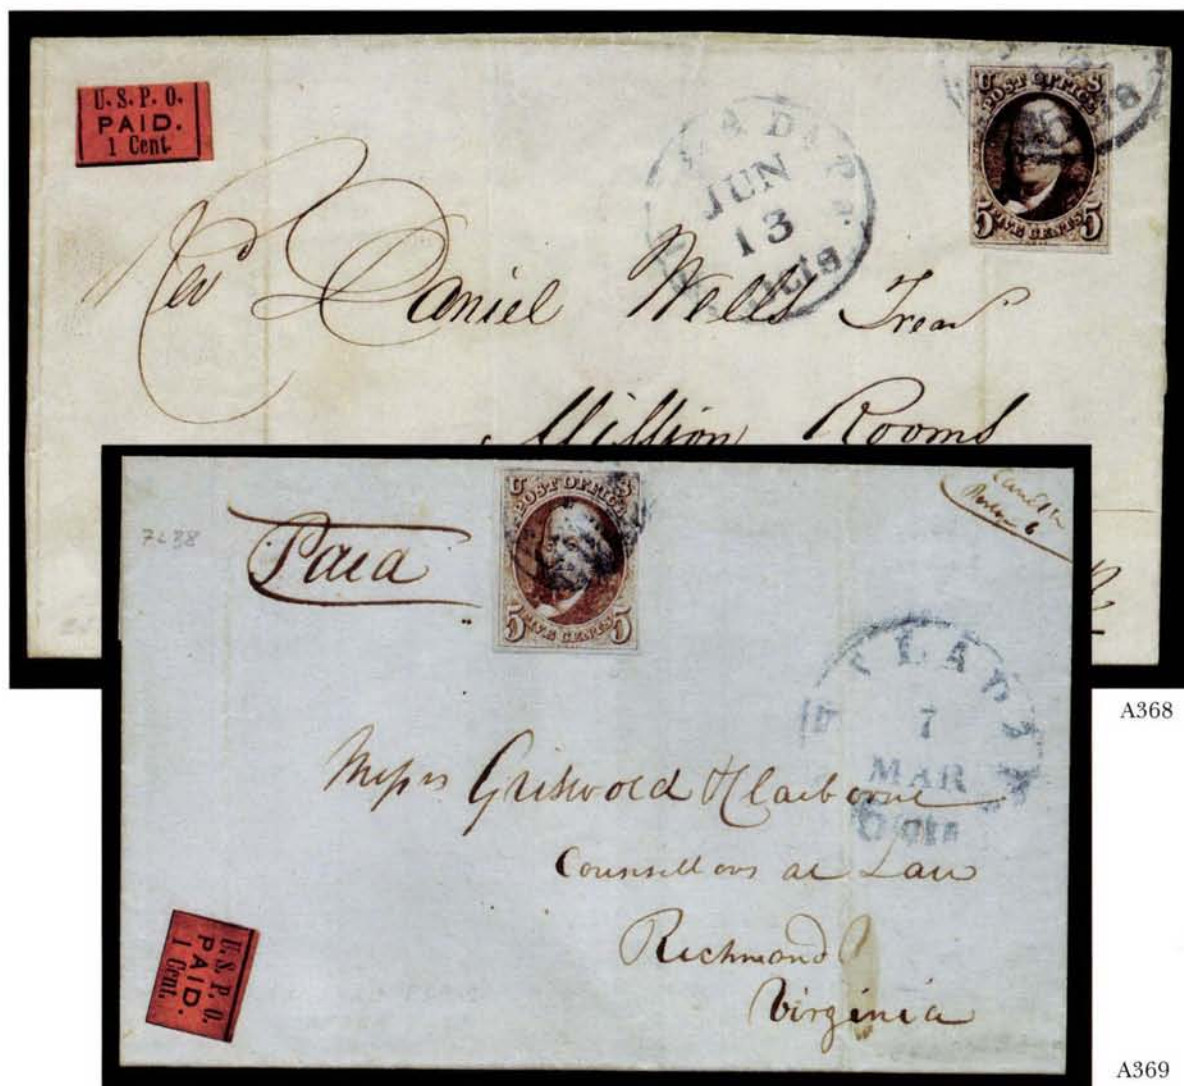 U. S. P. O.
PAID.
1 Cent.
U S
POST OFFICE
5 FIVE CENTS 5
JUN
13
Rev Daniel Wells Trear
Mission Rooms
A368
7438
Paid
U S
POST OFFICE
5 FIVE CENTS 5
7
MAR
Messrs Griswold & Claiborne
Counsellors at Law
Richmond
Virginia
U. S. P. O.
PAID.
1 Cent.
A369